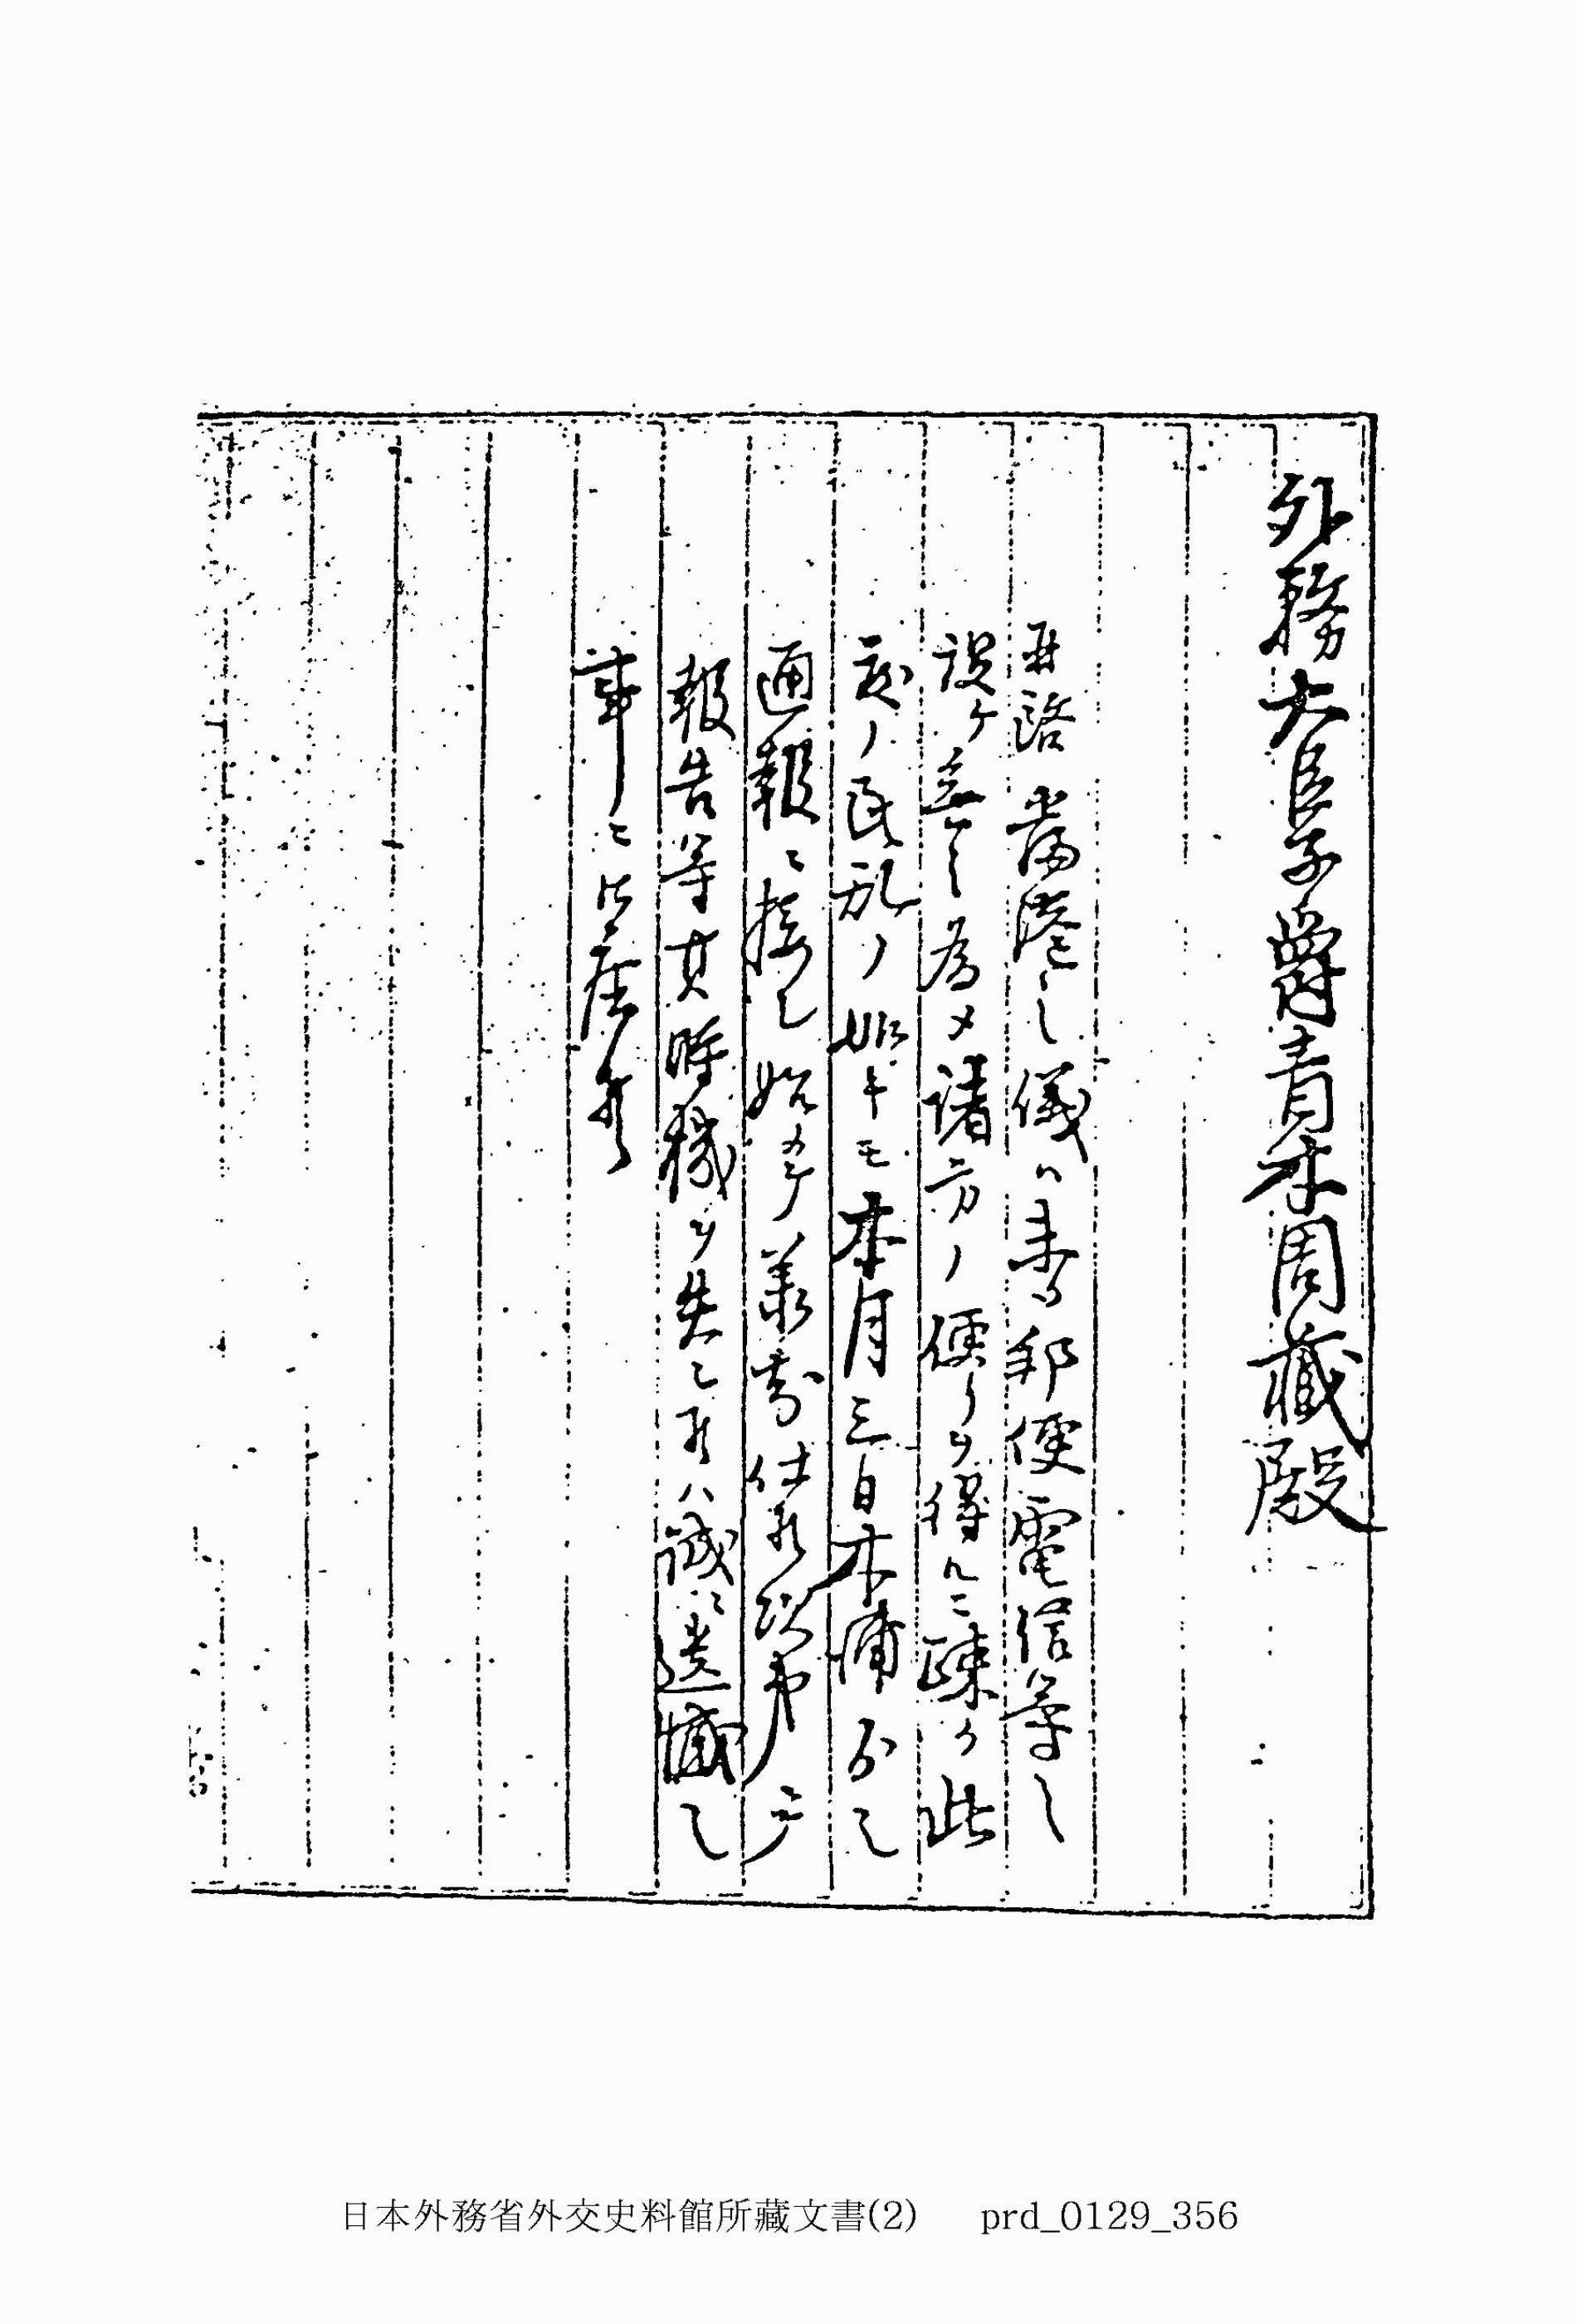 外務大臣子爵青木周藏殿
再啓 當港之儀ハ未タ郵便電信等之
設ケ無之為メ諸方ノ便リヲ得ルニ疎ク此
度ノ民乱ノ如キモ本月三日木浦ゟ之
通報ニ接し始メテ羕知仕候次第ニテ
報告等其時機ヲ失し候ハ誠ニ遺憾之
事ニ御座候
日本外務省外交史料館所藏文書(2) prd_0129_356